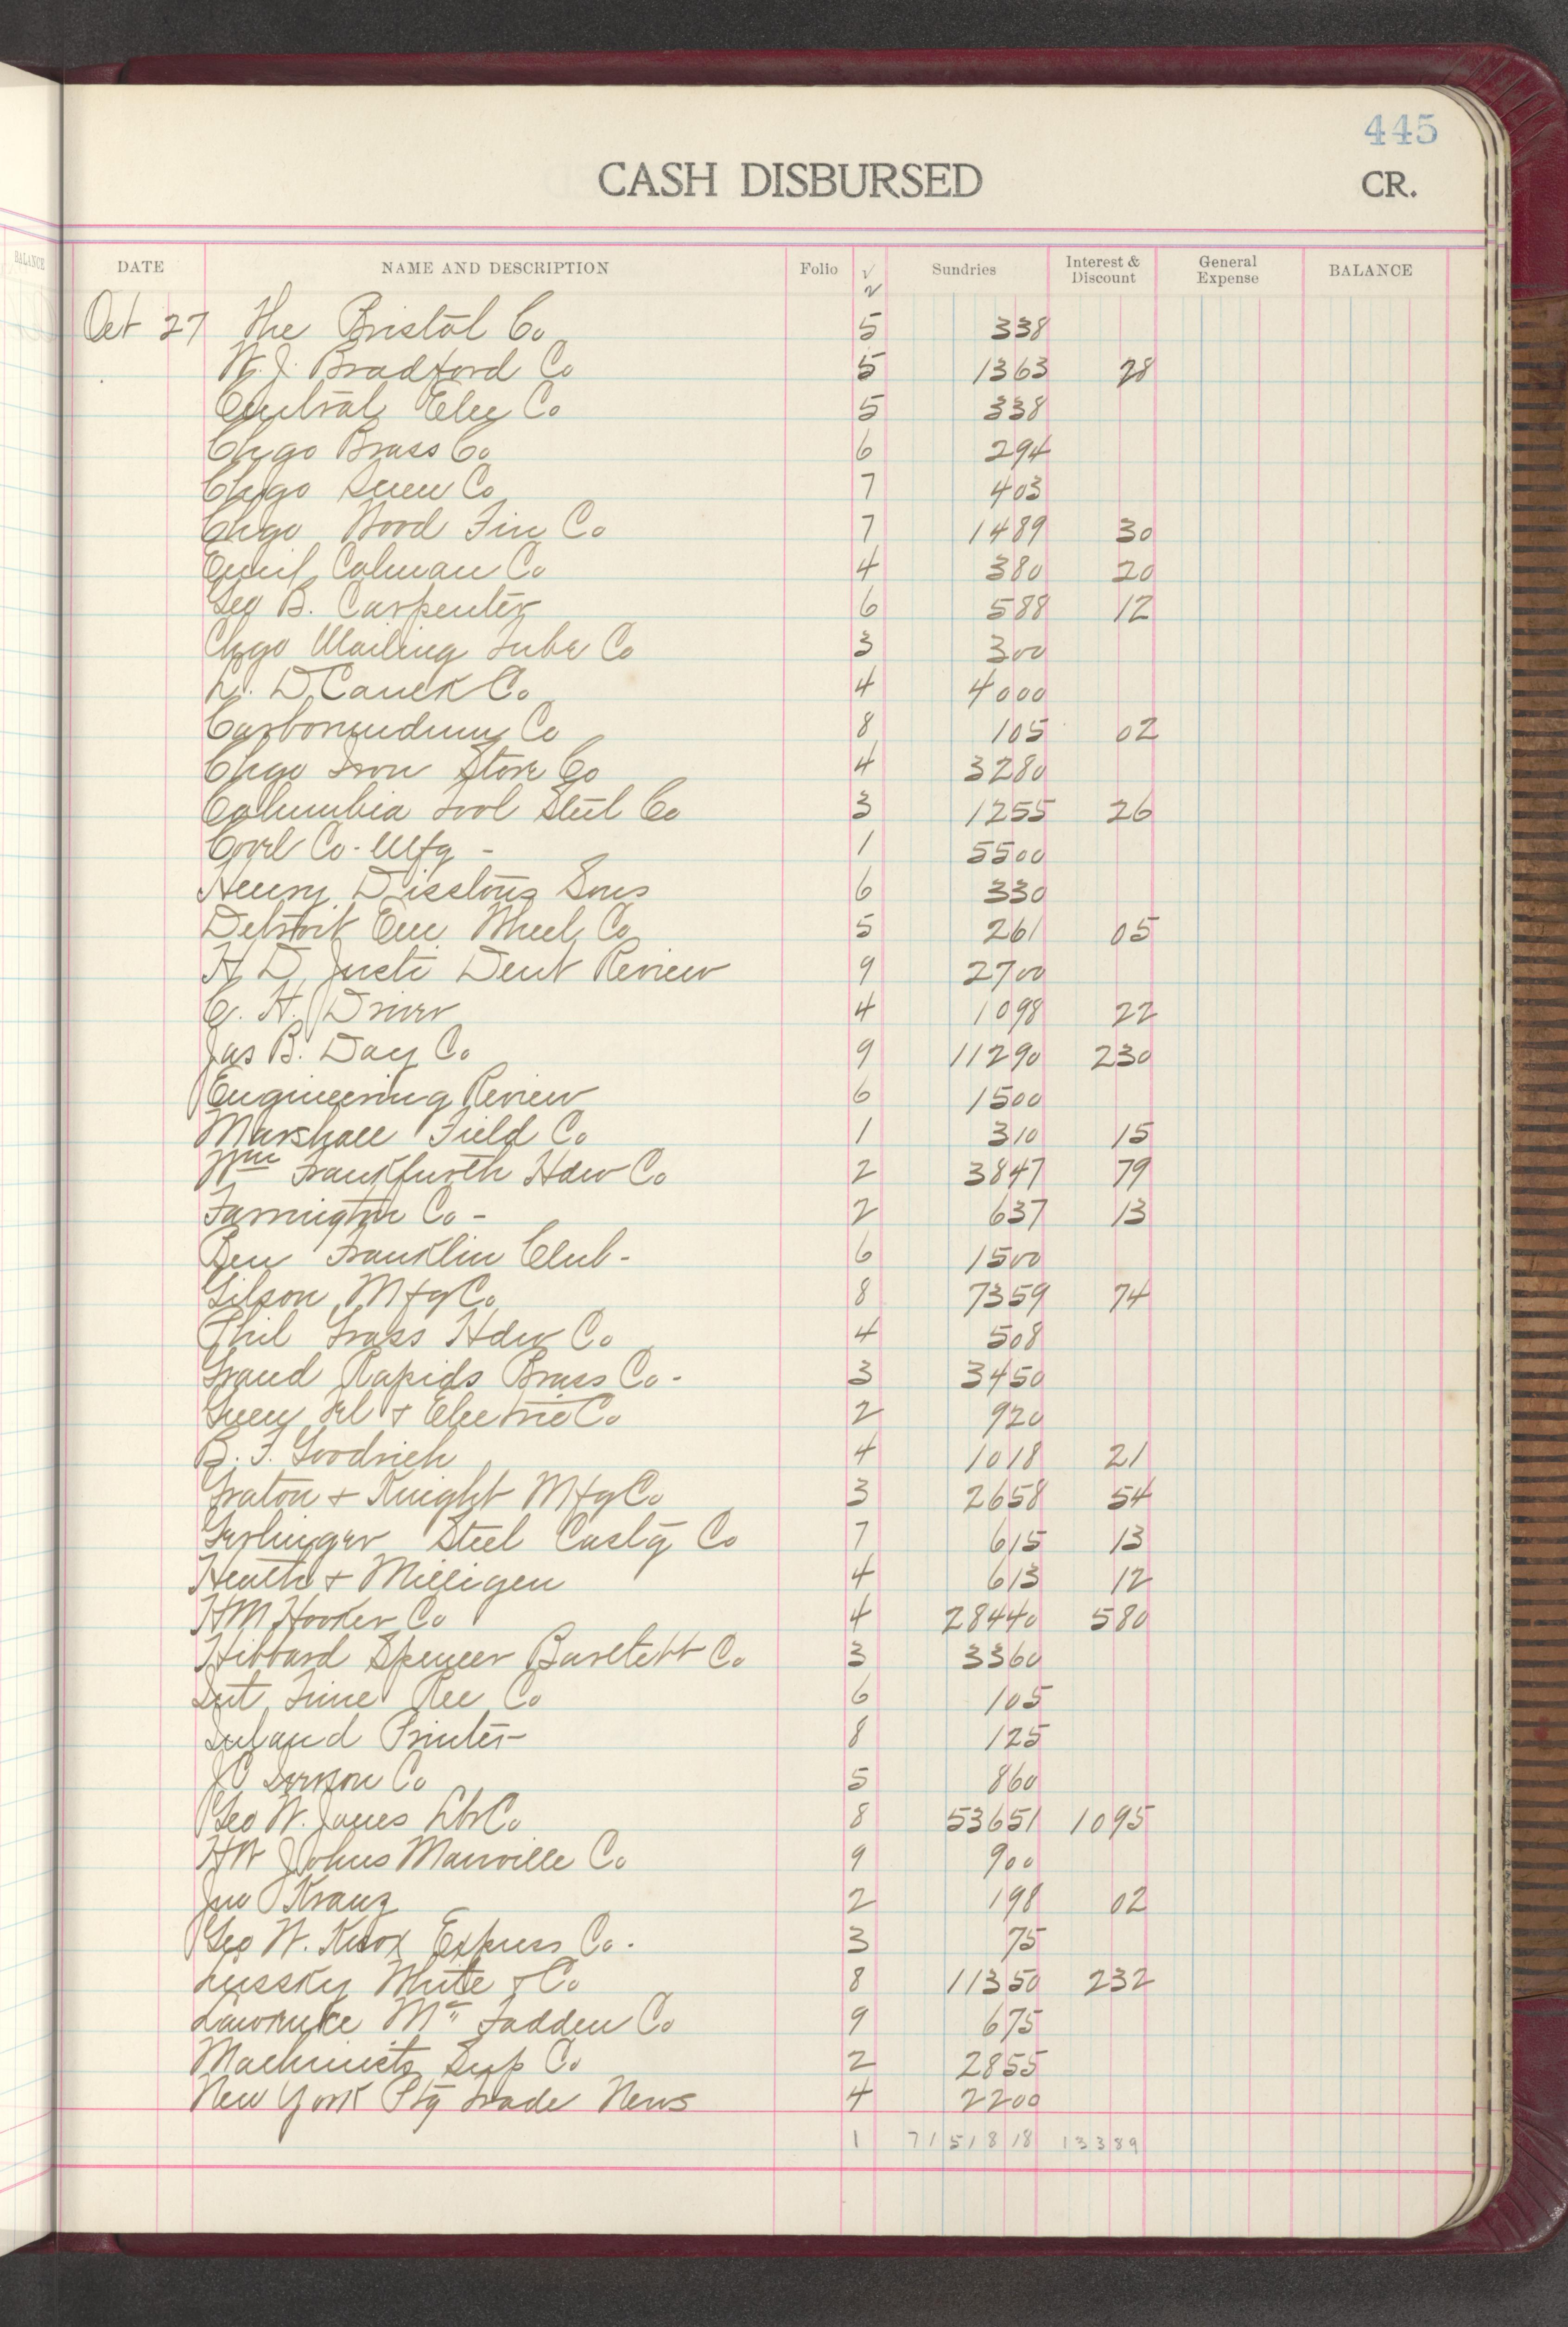 445
CASH DISBURSED CR.
BALANCE
DATE NAME AND DESCRIPTION Folio √ Sundries Interest & Discount General Expense BALANCE
Oct 27 The Bristol Co 5 338
W. J. Bradford Co 5 1363 28
Central Elec Co 5 338
Chgo Brass Co 6 294
Chgo Screw Co 7 403
Chgo Wood Fin Co 7 1489 30
Emil Calman Co 4 380 20
Geo B. Carpenter 6 588 12
Chgo Mailing Tube Co 3 300
D. Co 4 4000
Carborundum Co 8 105 02
Chgo Iron Store Co 4 3280
Columbia Tool Steel Co 3 1255 26
Co. Mfg - 1 5500
Henry Disstons Sons 6 330
Detroit Em Wheel Co 5 261 05
H D Justi Dent Review 9 2700
C. H. Driver 4 1098 22
Jas B. Day Co 9 11290 230
Engineering Review 6 1500
Marshall Field Co 1 310 15
Wm Frankfurth Hdw Co 2 3847 79
Farrington Co - 2 637 13
Ben Franklin Club - 6 1500
Gilson Mfg Co 8 7359 74
Phil Gross Hdw Co 4 508
Grand Rapids Brass Co - 3 3450
Tel + Electric Co 2 920
B. F. Goodrich 4 1018 21
Graton + Knight Mfg Co 3 2658 54
Gerlinger Steel Castg Co 7 615 13
Heath + Milligen 4 613 12
HM Hooker Co 4 28440 580
Hibbard Spencer Bartlett Co 3 3360
Int Time Rec Co 6 105
Inland Printer 8 125
J C Co 5 860
Geo W. Jones Lbr Co 8 53651 1095
HW Johns Manville Co 9 900
Jno Kranz 2 198 02
Geo W. Knox Express Co. 3 75
Lussky White + Co 8 11350 232
Lawrence Mc Fadden Co 9 675
Machinists Sup Co 2 2855
New York Ptg Trade News 4 2200
1 7151818 13389